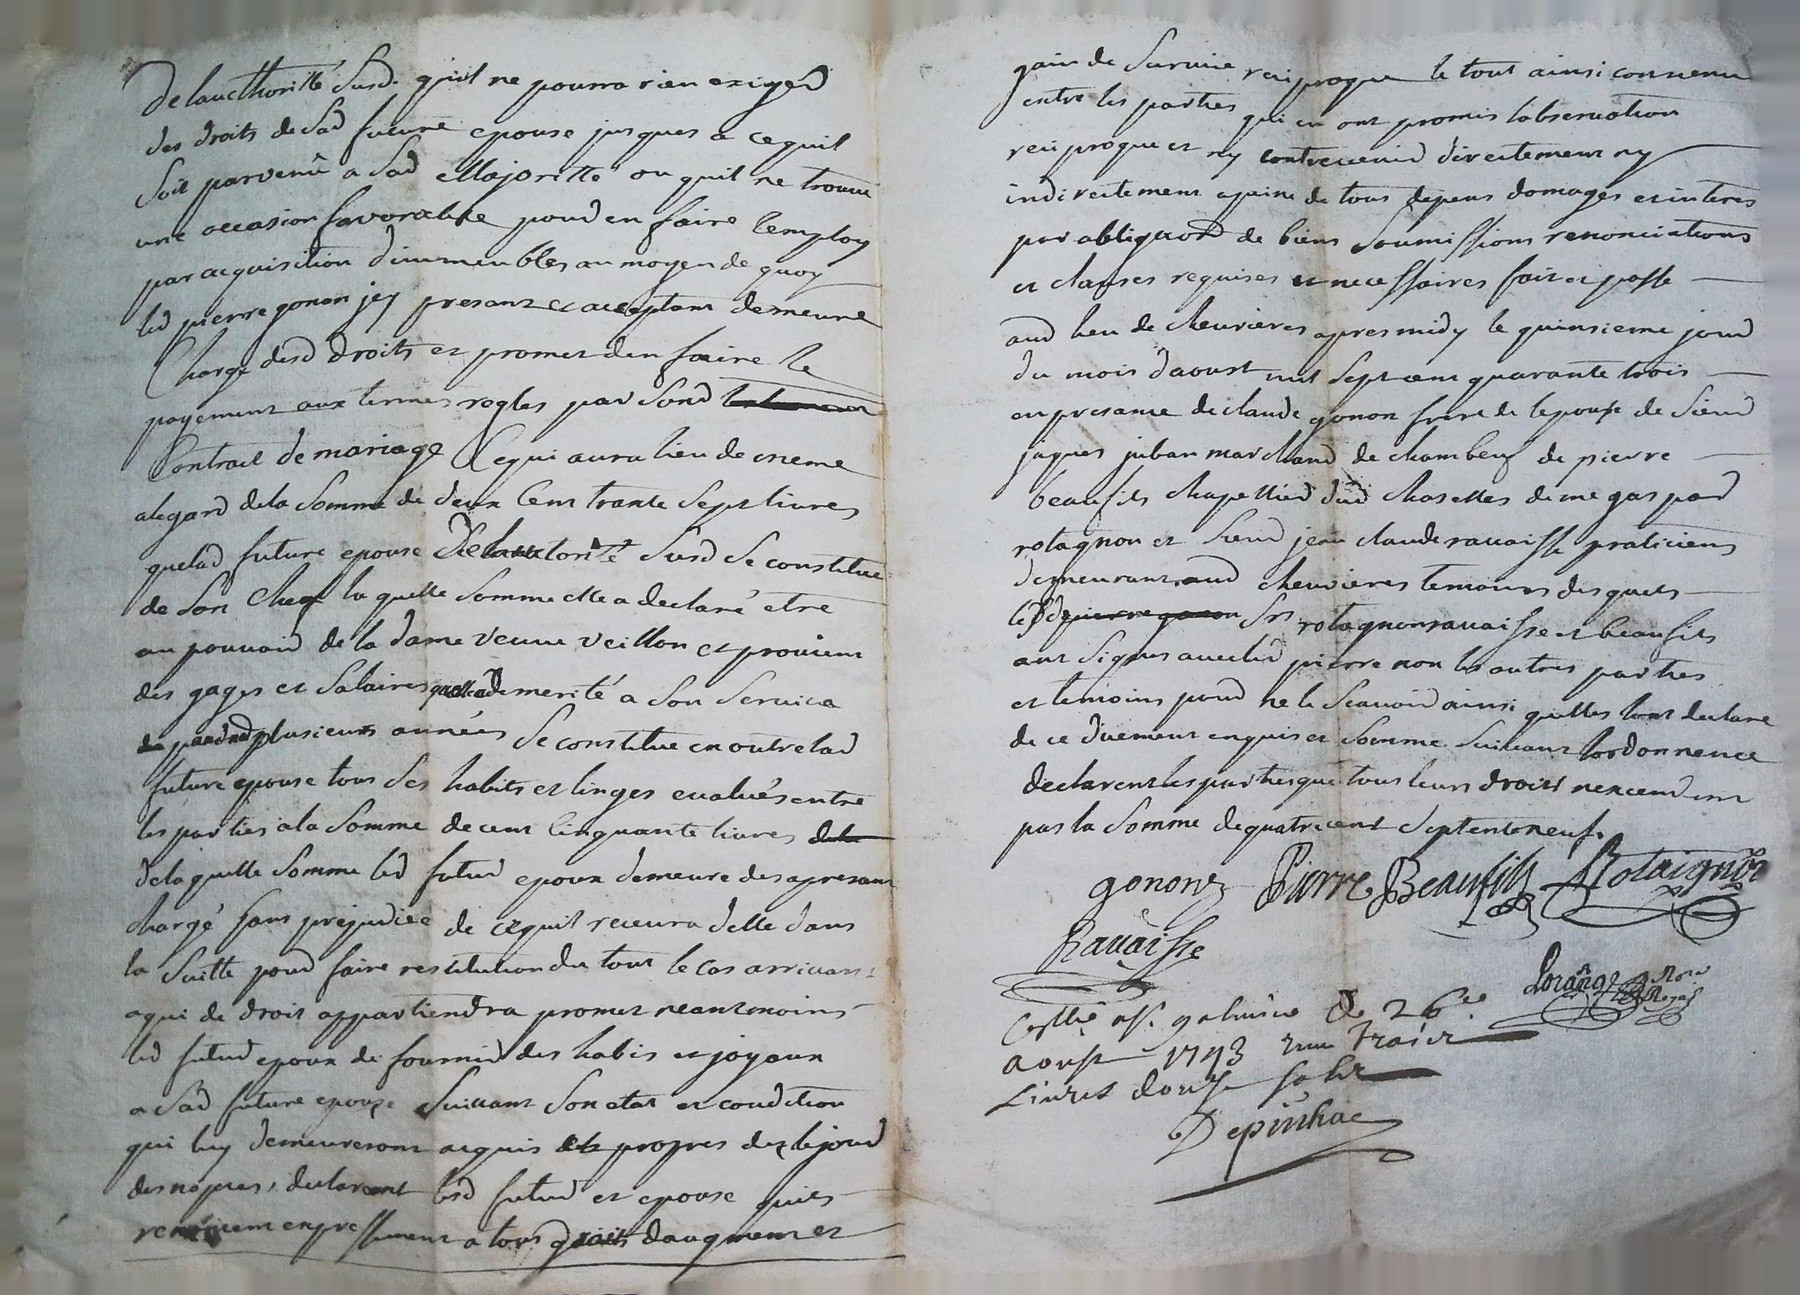 De laucthoritté Susd. quil ne pourra rien exiger
des droits de Sad future epouse jusques a ce quil
Soit parvenû a Sad Majoritté ou quil ne trouve
une occasion favorable pour en faire lemploy
par acquisition dimmeubles au moyen de quoy
led pierre gonon jcy presant et aceptant demeure
Chargé desd droits et promet den faire le
payement aux termes regles par Sond
Contrait de mariage Ce qui aura lieu de meme
alegard de la Somme de deux Cent trante Sept livres
quelad future epouse De lauctorité Susd Se constitue
de Son Chef la quelle Somme elle a declaré etre
au pouvoir de la dame veuve veillon et provient
des gages et Salaires quelle a merité a Son Service
pendnd plusieurs années Se constitue en outre lad
future epouse tous Ses habits et linges evalués entre
les parties ala Somme de cent Cinquante livres
de laquelle Somme led futur epoux demeure des apresant
chargé Sans prejudice de cequil recevra delle dans
la Suitte pour faire restitution du tout le Cas arrivant
a qui de droit appartiendra promet neantmoins
led futur epoux de fournir des habis et joyaux
a Sad future epouse Suivant Son etat et condition
qui luy demeureront acquis et propres dez le jour
des nopces, declarant lesd futur et epouse quils
renoncent expressement a tous droits daugment et
gain de Survie reciproque le tout ainsi convenu
entre les parties qui en ont promis lobservation
reciproque et ny contrevenir directement ny
indirectement a peine de tous depens domages et interes
par obligaon de biens Soumissions renonciations
et clauses requises et necessaires fait et passé
aud lieu de Chevrieres apres midy le quinsieme jour
du mois daoust mil Sept cent quarante trois
en presance de claude gonon frere de lepouse de Sieur
jaques juban marchand de Chambeuf de pierre
beaufils Chapellier dud Chaselles de me gaspard
rotagnon et Sieur jean claude ravaisse praticiens
demeurant aud Chevrieres temoins desquels
les Srs rotagnon ravaisse et beaufils
ont Signés avec led pierre non les autres parties
et temoins pour ne le Scavoir ainsi quelles lont declare
de ce duement enquis et Sommé Suivant lordonnence
declarent les parties que tous leurs droits nexcendent
pas la Somme de quatre cent Septente neuf.
gonon
Pierre Beaufils
Rotaignon
Ravaisse
Lorang Nore Royal
Collé a St. galmier le 26e
Aoust 1743 Reçu Traize
Livres douze sols
Depinhac